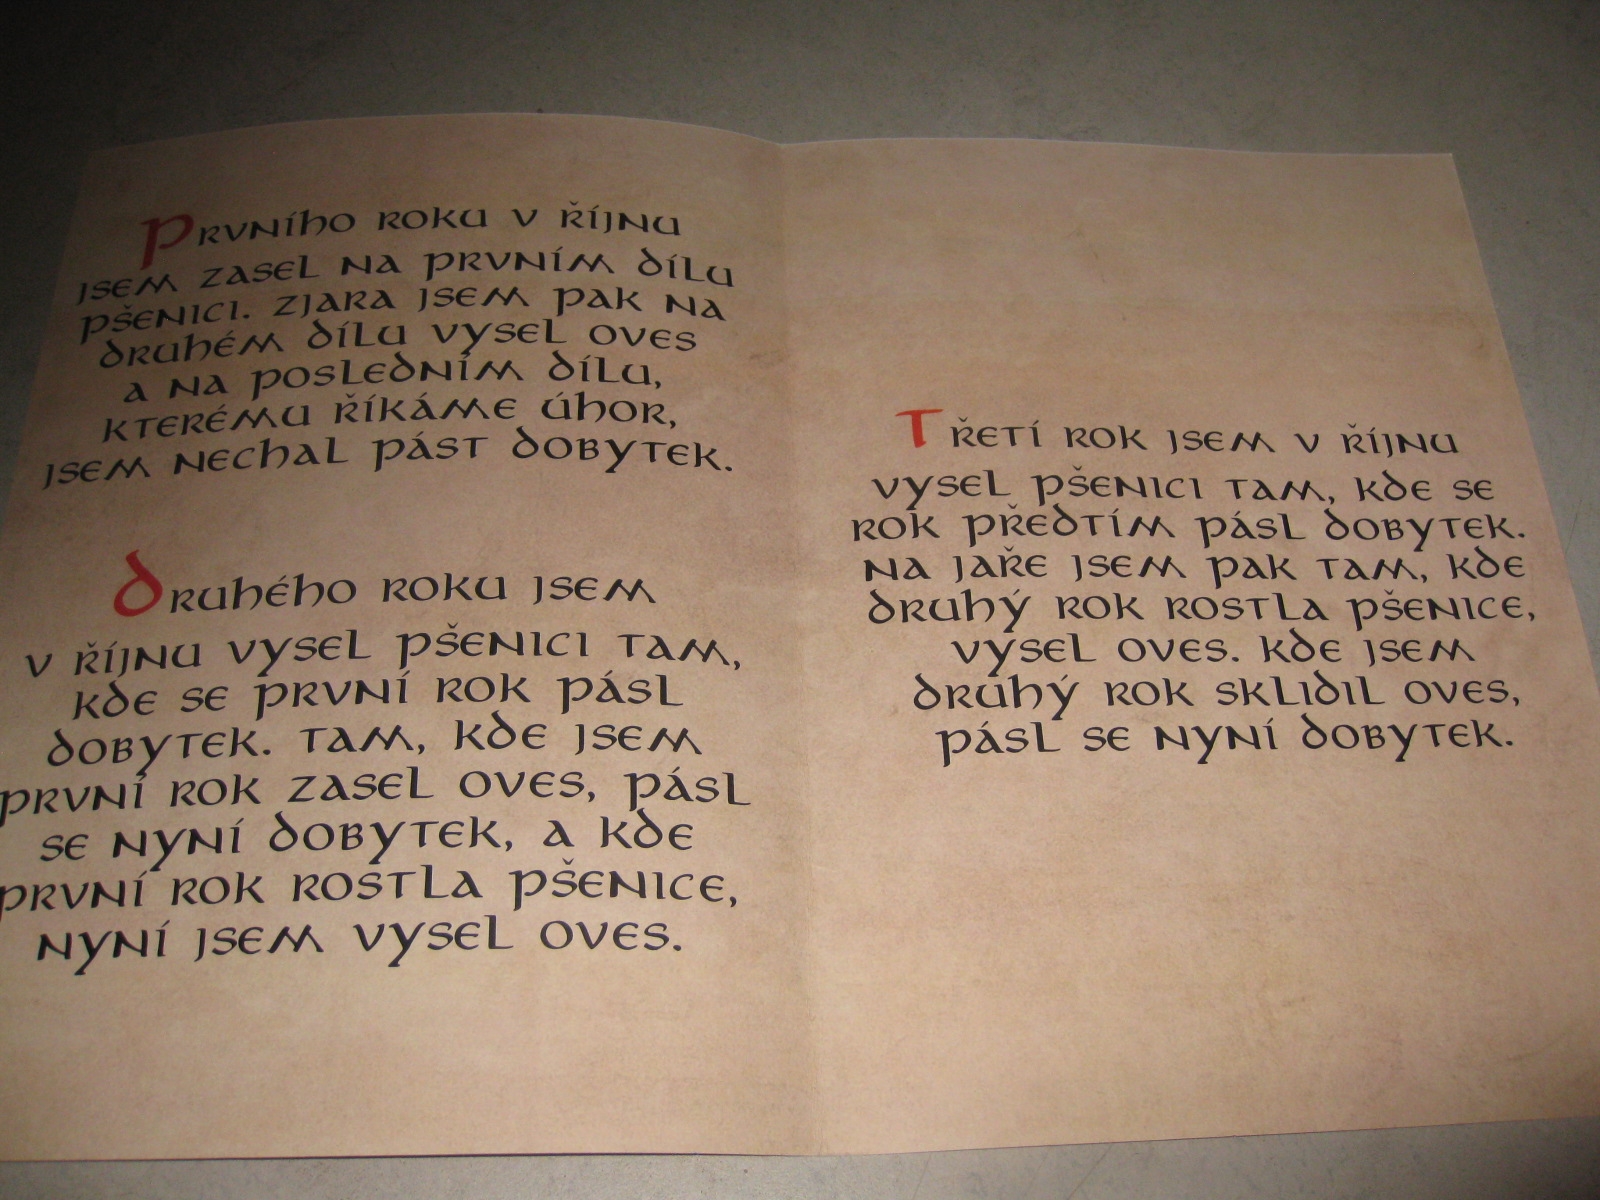 Prvního roku v říjnu
jsem zasel na prvním dílu
pšenici. Zjara jsem pak na
druhém dílu vysel oves
a na posledním dílu,
kterému říkáme úhor,
jsem nechal pást dobytek.
Druhého roku jsem
v říjnu vysel pšenici tam,
kde se první rok pásl
dobytek. Tam, kde jsem
první rok zasel oves, pásl
se nyní dobytek, a kde
první rok rostla pšenice,
nyní jsem vysel oves.
Třetí rok jsem v říjnu
vysel pšenici tam, kde se
rok předtím pásl dobytek.
Na jaře jsem pak tam, kde
druhý rok rostla pšenice,
vysel oves. Kde jsem
druhý rok sklidil oves,
pásl se nyní dobytek.